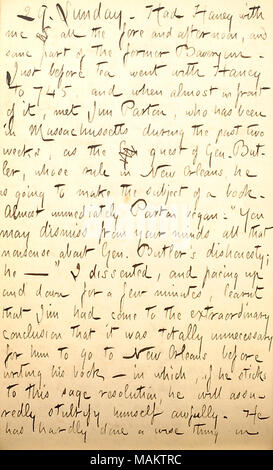 29. Sunday. Had Haney with
me all the fore and afternoon, and
some part of the former Boweryem.
Just before tea went with Haney
to 745, and when almost in front
of it, met Jim Parton, who has been
in Massachusetts during the past two
weeks, as the guest of Gen. But-
ler, whose rule in New Orleans, he
is going to make the subject of a book.
Almost immediately Parton began. "You
may dismiss from your minds all that
nonsense about Gen. Butler's dishonesty;
he — " I dissented, and pacing up
and down for a few minutes, learnt
that Jim had come to the extraordinary
conclusion that it was totally unnecessary
for him to go to New Orleans before
writing his book — in which, if he sticks
to this sage resolution, he will assu-
redly stultify himself awfully. He
has hardly done a wise thing in
alamy
Image ID: MAKTRC
www.alamy.com